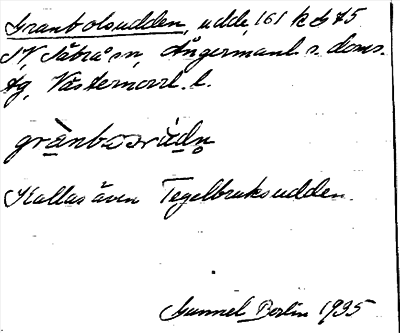 Granbolsudden, udde, 161 k b 75
N Nätra sn, Ångermanl. s. doms.
tg, Västernorrl. l.
Kallas även Tegelbruksudden.
Gunnel Berlin 1935